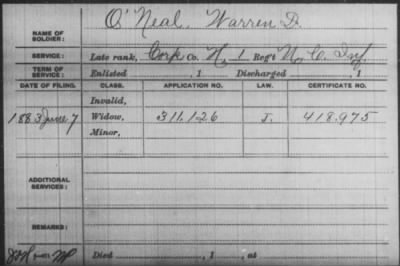 NAME OF SOLDIER: O'Neal, Warren D.
SERVICE: Late rank, Corp Co. H, 1 Reg't N. C. Inf.
TERM OF SERVICE: Enlisted , 1 Discharged , 1
DATE OF FILING. CLASS. APPLICATION NO. LAW. CERTIFICATE NO.
Invalid,
1883 June 7 Widow, 311.126 J. 418.975
Minor,
ADDITIONAL SERVICES:
REMARKS:
Died , 1 , at